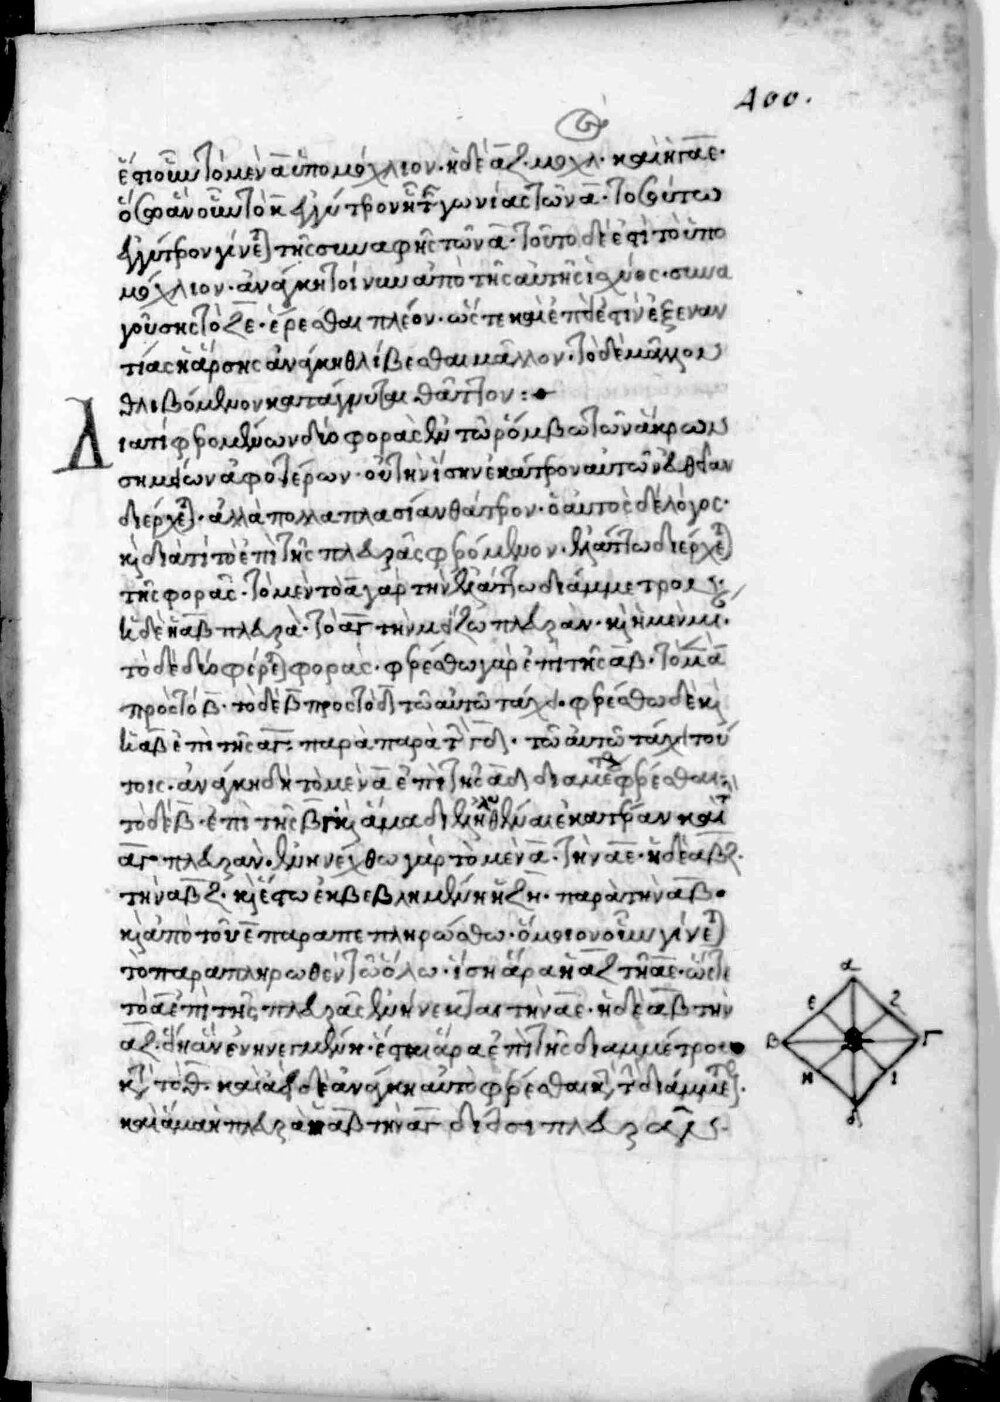 400.
ἔστι οὖν τὸ μὲν α ὑπομόχλιον. ἡ δὲ αζ μοχλ. καὶ ἡ γαε.
ὅσῳ ἂν οὖν τὸ κ ἐγγύτερον ᾖ τῆς γωνίας τῶν α. τοσούτῳ
ἐγγύτερον γίνεται τῆς συναφῆς τῶν α. τοῦτο δέ ἐστι τὸ ὑπο
μόχλιον. ἀνάγκη τοίνυν ἀπὸ τῆς αὐτῆς ἰσχύος. συνα
γούσης τὸ ζε. αἴρεσθαι πλέον. ὥστε καὶ ἐπεί ἐστιν ἐξ ἐναν
τίας ἡ ἄρσης ἀνάγκη θλίβεσθαι μᾶλλον. τὸ δὲ μᾶλλον
θλιβόμενον κατάγνυται θᾶττον:
Διατί φερομένων δύο φορὰς ἐν τῷ ῥόμβῳ τῶν ἄκρων
σημείων ἀμφοτέρων. οὐ τὴν ἴσην ἑκάτερον αὐτῶν εὐθεῖαν
διέρχεται. ἀλλὰ πολλαπλασίαν θάτερον. ὁ αὐτὸς δὲ λόγος.
καὶ διὰ τί τὸ ἐπὶ τῆς πλευρᾶς φερόμενον. ἐλάττω διέρχεται
τῆς φορᾶς. τὸ μὲν τὸ α γὰρ τὴν ἐλάττω διάμμετρον.
ἡ δὲ ἡ αβ πλευρά. τὸ αγ τὴν μείζω πλευράν. καὶ ἡ μὲν μι.
τὸ δὲ δύο φέρεται φοράς. φερέσθω γὰρ ἐπὶ τῆς αβ. τὸ μὲν α
πρὸς τὸ β. τὸ δὲ β πρὸς τὸ δ τῷ αὐτῷ τάχει. φερέσθω δὲ καὶ
ἡ αβ ἐπὶ τῆς αγ. παρὰ παρὰ τὴν γδ. τῷ αὐτῷ τάχει τού
τοις. ἀνάγκη δὴ τὸ μὲν α ἐπὶ τῆς αδ διαμέτρου φέρεσθαι.
τὸ δὲ β. ἐπὶ τῆς βγ καὶ ἅμα διεληλυθέναι ἑκατέραν καὶ τὴν
αγ πλευράν. ἐνηνέχθω γὰρ τὸ μὲν α. τὴν αε. ἡ δὲ αβ ζ.
τὴν αβ ζ. καὶ ἔστω ἐκβεβλημένη ἡ ζη. παρὰ τὴν αβ.
καὶ ἀπὸ τοῦ ε παραπεπληρώσθω. ὅμοιον οὖν γίνεται
τὸ παραπληρωθὲν τῷ ὅλῳ. ἴση ἄρα ἡ αζ τῇ αε. ὥστε
τὸ α ἐπὶ τῆς πλευρᾶς ἐνήνεκται τὴν αε. ἡ δὲ αβ τὴν
αζ. εἴη ἂν ἐνηνεγμένη. ἔσται ἄρα ἐπὶ τῆς διαμμέτρου
κατὰ τὸ θ. καὶ αἰεὶ δὲ ἀνάγκη αὐτὸ φέρεσθαι κατὰ τὴν διάμμετρον.
καὶ ἅμα ἡ πλευρὰ ἡ αβ τὴν αγ δίεισι πλευράν.
α
ε ζ
β γ
η ι
δ